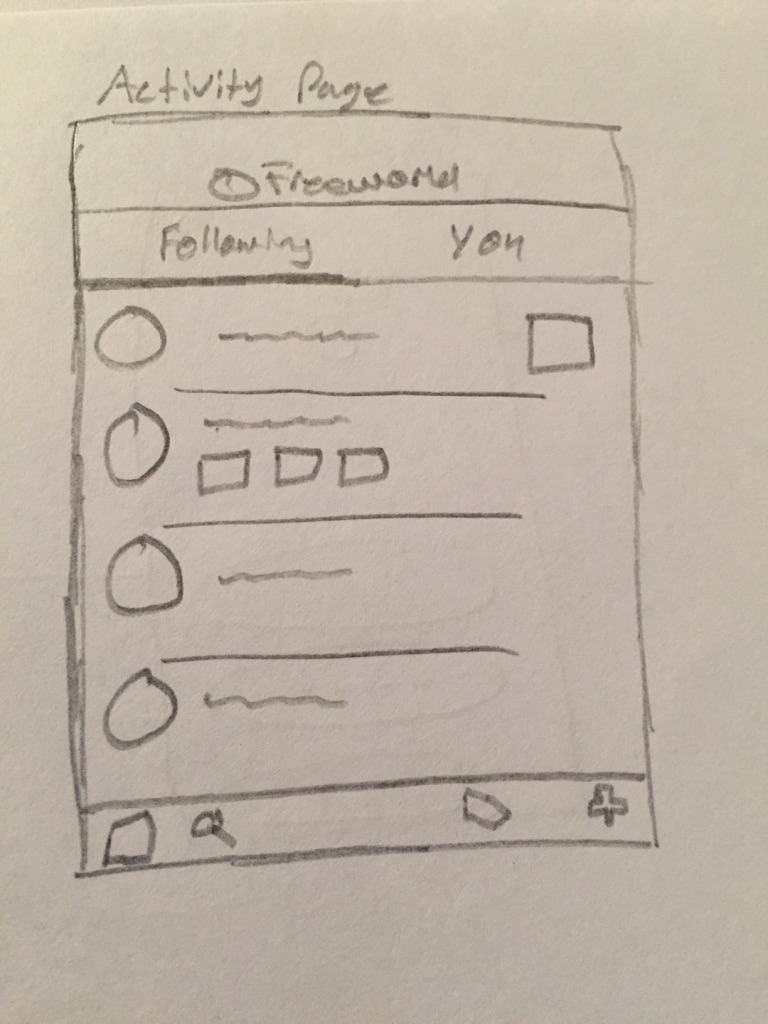 Activity Page
Freeworld
Following You